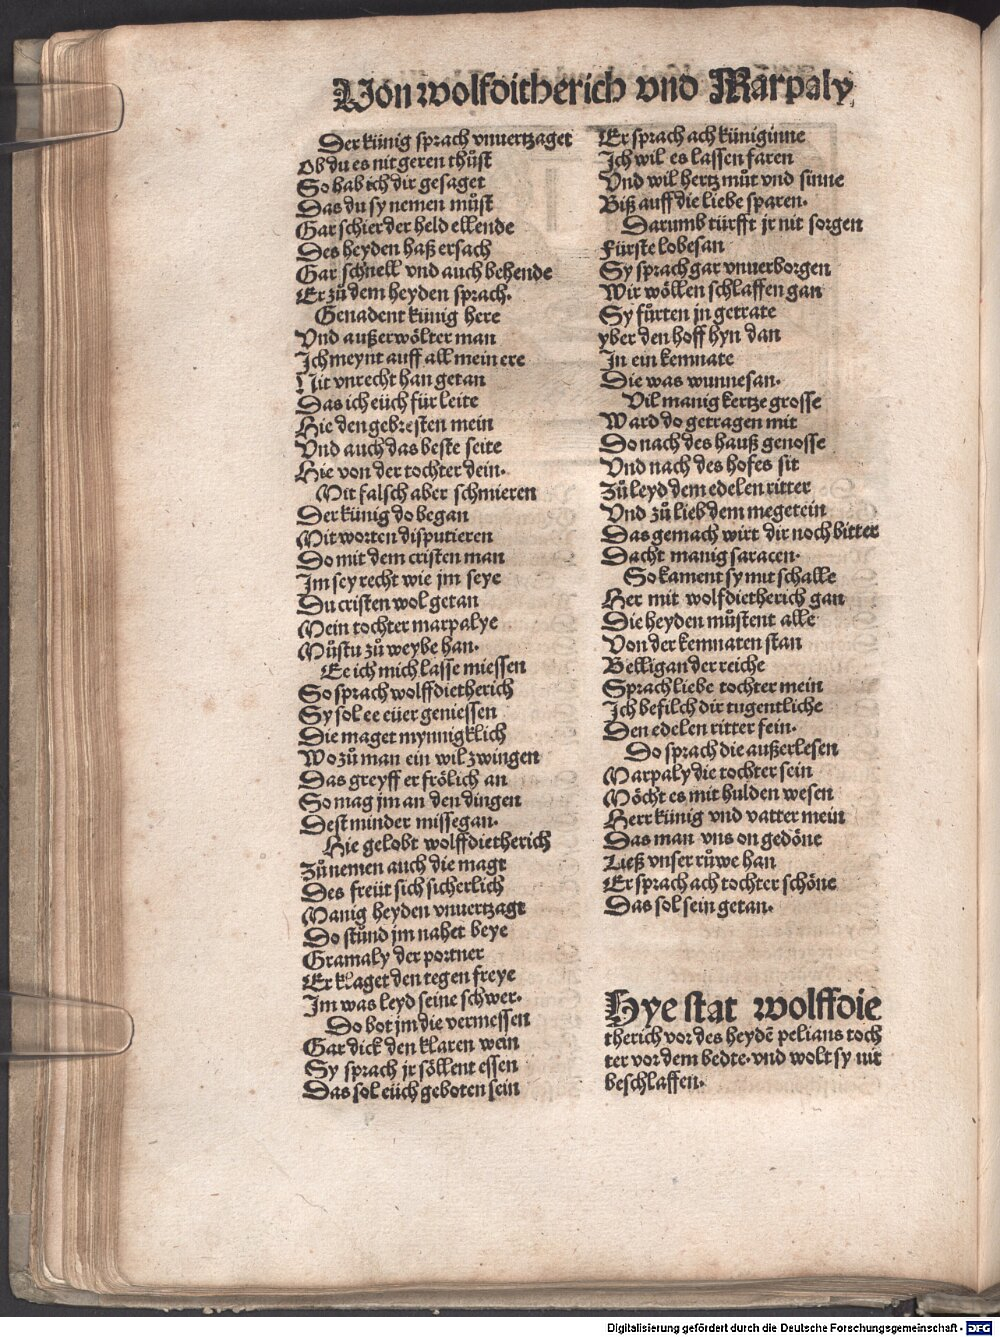 Von wolfditherich vnd Marpaly.
Der künig sprach vnuertzaget
Ob du es nit geren thůst
So hab ich dir gesaget
Das du sy nemen můst
Gar schier der held ellende
Des heyden haß ersach
Gar schnell vnd auch behende
Er zů dem heyden sprach.
Genadent künig here
Vnd außerwölter man
Ich meynt auff all mein ere
Nit vnrecht han getan
Das ich eüch für leite
Hie den gebresten mein
Vnd auch das beste seite
Hie von der tochter dein.
Mit falsch aber schmieren
Der künig do began
Mit worten disputieren
Do mit dem cristen man
Im sey recht wie jm seye
Du cristen wol getan
Mein tochter marpalye
Můstu zů weybe han.
Ee ich mich lasse miessen
So sprach wolffdietherich
Sy sol ee eüer geniessen
Die maget mynnigklich
Wo zů man ein wil zwingen
Das greyff er frölich an
So mag jm an den dingen
Dest minder missegan.
Hie gelobt wolffdietherich
Zů nemen auch die magt
Des freüt sich sicherlich
Manig heyden vnuertzagt
Do stůnd jm nahet beye
Gramaly der portner
Er klaget den tegen freye
Im was leyd seine schwer.
Do bot jm die vermessen
Gar dick den klaren wein
Sy sprach jr söllent essen
Das sol eüch geboten sein
Er sprach ach küniginne
Ich wil es lassen faren
Vnd wil hertz můt vnd sinne
Biß auff die liebe sparen.
Darumb türfft jr nit sorgen
Fürste lobesan
Sy sprach gar vnuerborgen
Wir wöllen schlaffen gan
Sy fůrten jn getrate
yber den hoff hyn dan
In ein kemnate
Die was wunnesan.
Vil manig kertze grosse
Ward do getragen mit
Do nach des hauß genosse
Vnd nach des hofes sit
Zů leyd dem edelen ritter
Vnd zů lieb dem megetein
Das gemach wirt dir noch bitter
Dacht manig saracen.
So kament sy mit schalle
Her mit wolfdietherich gan
Die heyden můstent alle
Von der kemnaten stan
Belligan der reiche
Sprach liebe tochter mein
Ich befilch dir tugentliche
Den edelen ritter fein.
Do sprach die außerlesen
Marpaly die tochter sein
Möcht es mit hulden wesen
Herr künig vnd vatter mein
Das man vns on gedöne
Ließ vnser růwe han
Er sprach ach tochter schöne
Das sol sein getan.
Hye stat wolffdie
therich vor des heydē pelians toch
ter vor dem bedte. vnd wolt sy nit
beschlaffen.
Digitalisierung gefördert durch die Deutsche Forschungsgemeinschaft - DFG